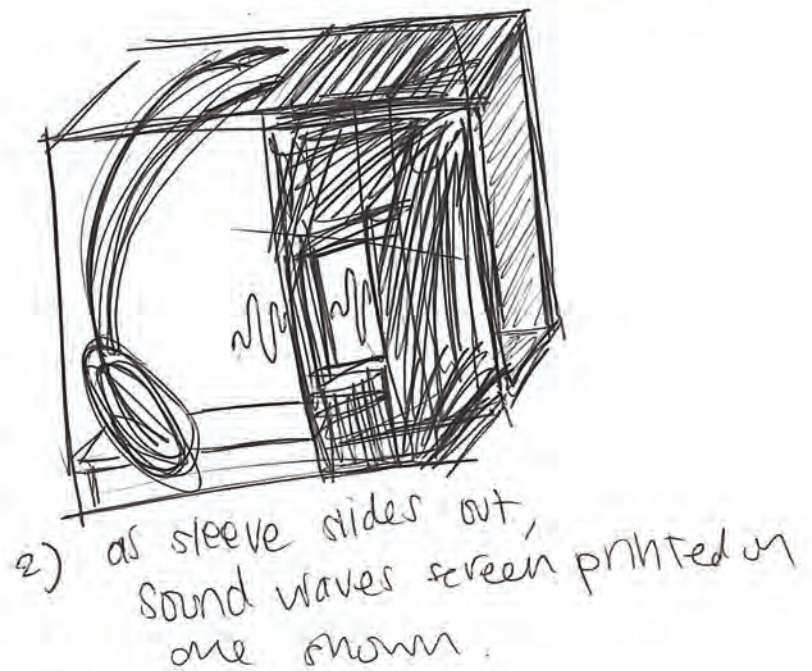 2) as sleeve slides out,
sound waves screen printed on
are shown.